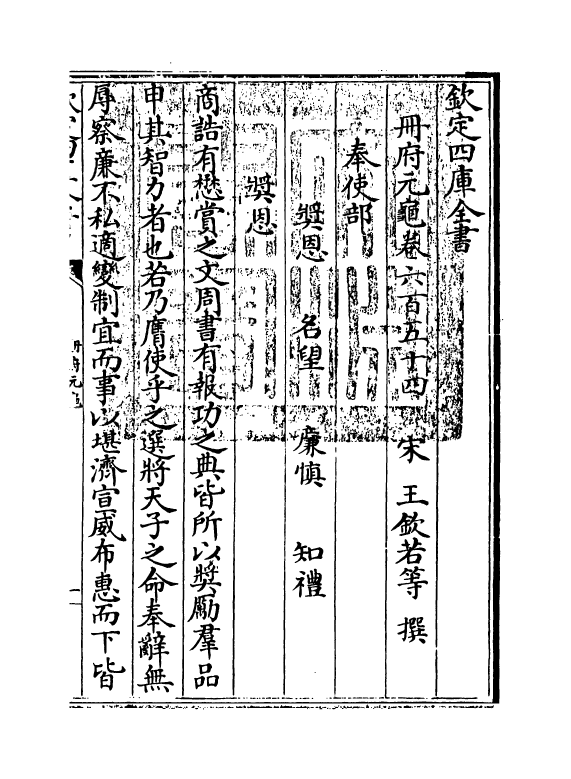 欽定四庫全書
冊府元龜卷六百五十四　宋　王欽若等　撰
奉使部
奬恩　名望　廉慎　知禮
奬恩
商誥有懋賞之文周書有報功之典皆所以奬勵羣品
申其智力者也若乃膺使乎之選將天子之命奉辭無
辱察廉不私適變制宜而事以堪濟宣威布惠而下皆
冊府元龜
一